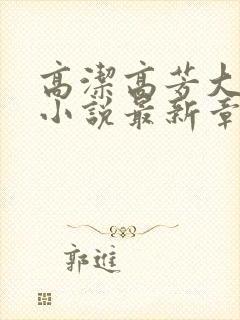 高潔高芳大
小說最新章
郭進